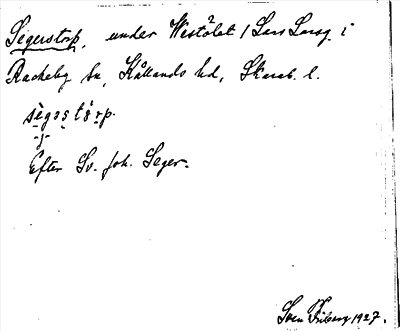 Segerstorp, under Westölet / Lars Larsg. i
Rackeby sn, Kållands hd, Skarab. l.
segostórp.
Efter Sv. Joh. Seger.
Sven Friberg 1927.